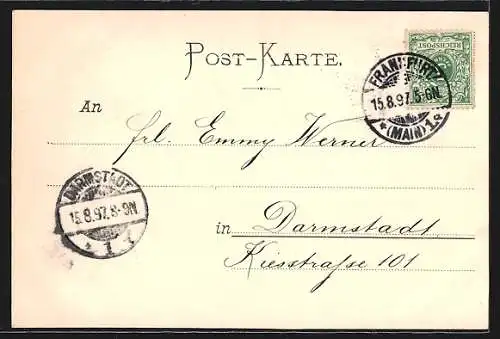 POST-KARTE.
REICHSPOST
FRANKFURT
15.8.97. 8-9N
*(MAIN) 1.a
An
Frl. Emmy Werner
DARMSTADT
15.8.97. 8-9N
* 1 *
in Darmstadt
Kiesstraße 101